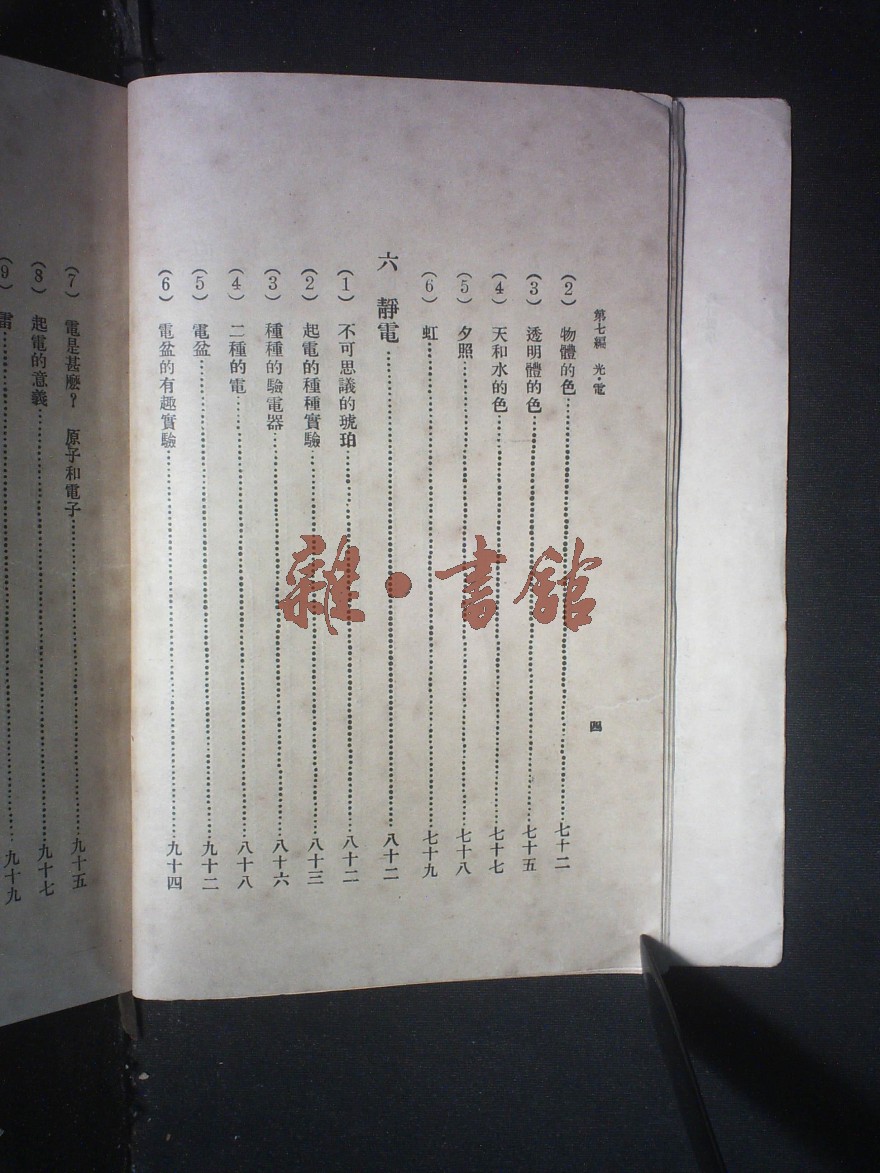 第七編 光·電
四
(2) 物體的色……七十二
(3) 透明體的色……七十五
(4) 天和水的色……七十七
(5) 夕照……七十八
(6) 虹……七十九
六 靜電……八十二
(1) 不可思議的琥珀……八十二
(2) 起電的種種實驗……八十三
(3) 種種的驗電器……八十六
(4) 二種的電……八十八
(5) 電盆……九十二
(6) 電盆的有趣實驗……九十四
(7) 電是甚麼? 原子和電子……九十五
(8) 起電的意義……九十七
(9) 雷……九十九
雜·書館